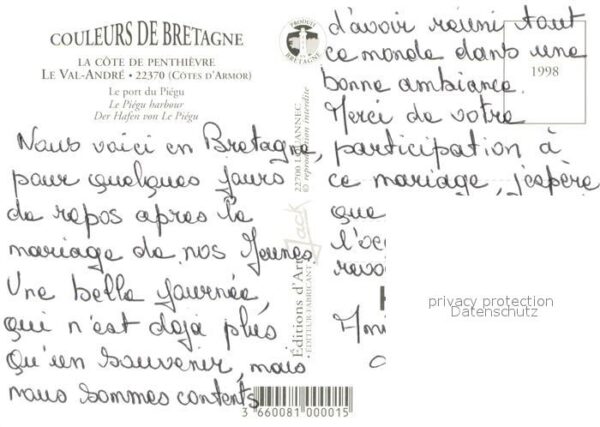 COULEURS DE BRETAGNE
LA CÔTE DE PENTHIÈVRE
LE VAL-ANDRÉ • 22370 (CÔTES D'ARMOR)
Le port du Piégu
Le Piégu harbour
Der Hafen von Le Piégu
Nous voici en Bretagne,
pour quelques jours
de repos apres le
mariage de nos Jeunes.
Une belle journée,
qui n'est deja plus
qu'un souvenir, mais
nous sommes contents
PRODUIT
BRETAGNE
22700 LOUANNEC
© reproduction interdite
Jack
Éditions d'Art
• ÉDITEUR-FABRICANT •
3 660081 000015
d'avoir réuni tout
ce monde dans une
bonne ambiance.
1998
Merci de votre
participation à
ce mariage, j'espère
que
l'occ
revo
privacy protection
Datenschutz